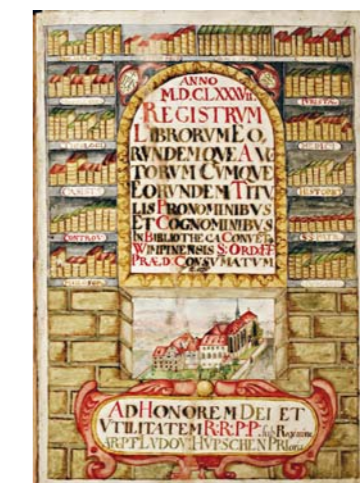 ANNO
M.D.CLXXXVII.
REGISTRVM
LIBRORVM EO,
RVNDEMQVE AV
TORVM CVMQVE
EORVNDEM TITV
LIS PRONOMINIBVS
ET COGNOMINIBVS
IN BIBLIOTHECA CONVĒT,
WIMPINENSIS S: ORD: FF
PRÆD: CONSVMATVM
HISTORI
SS PATR
CONTROV
AD HONOREM DEI ET
VTILITATEM R:R:P:P: sub Regimine
AR:P:F LVDOVI: HVPSCHEN PRioris